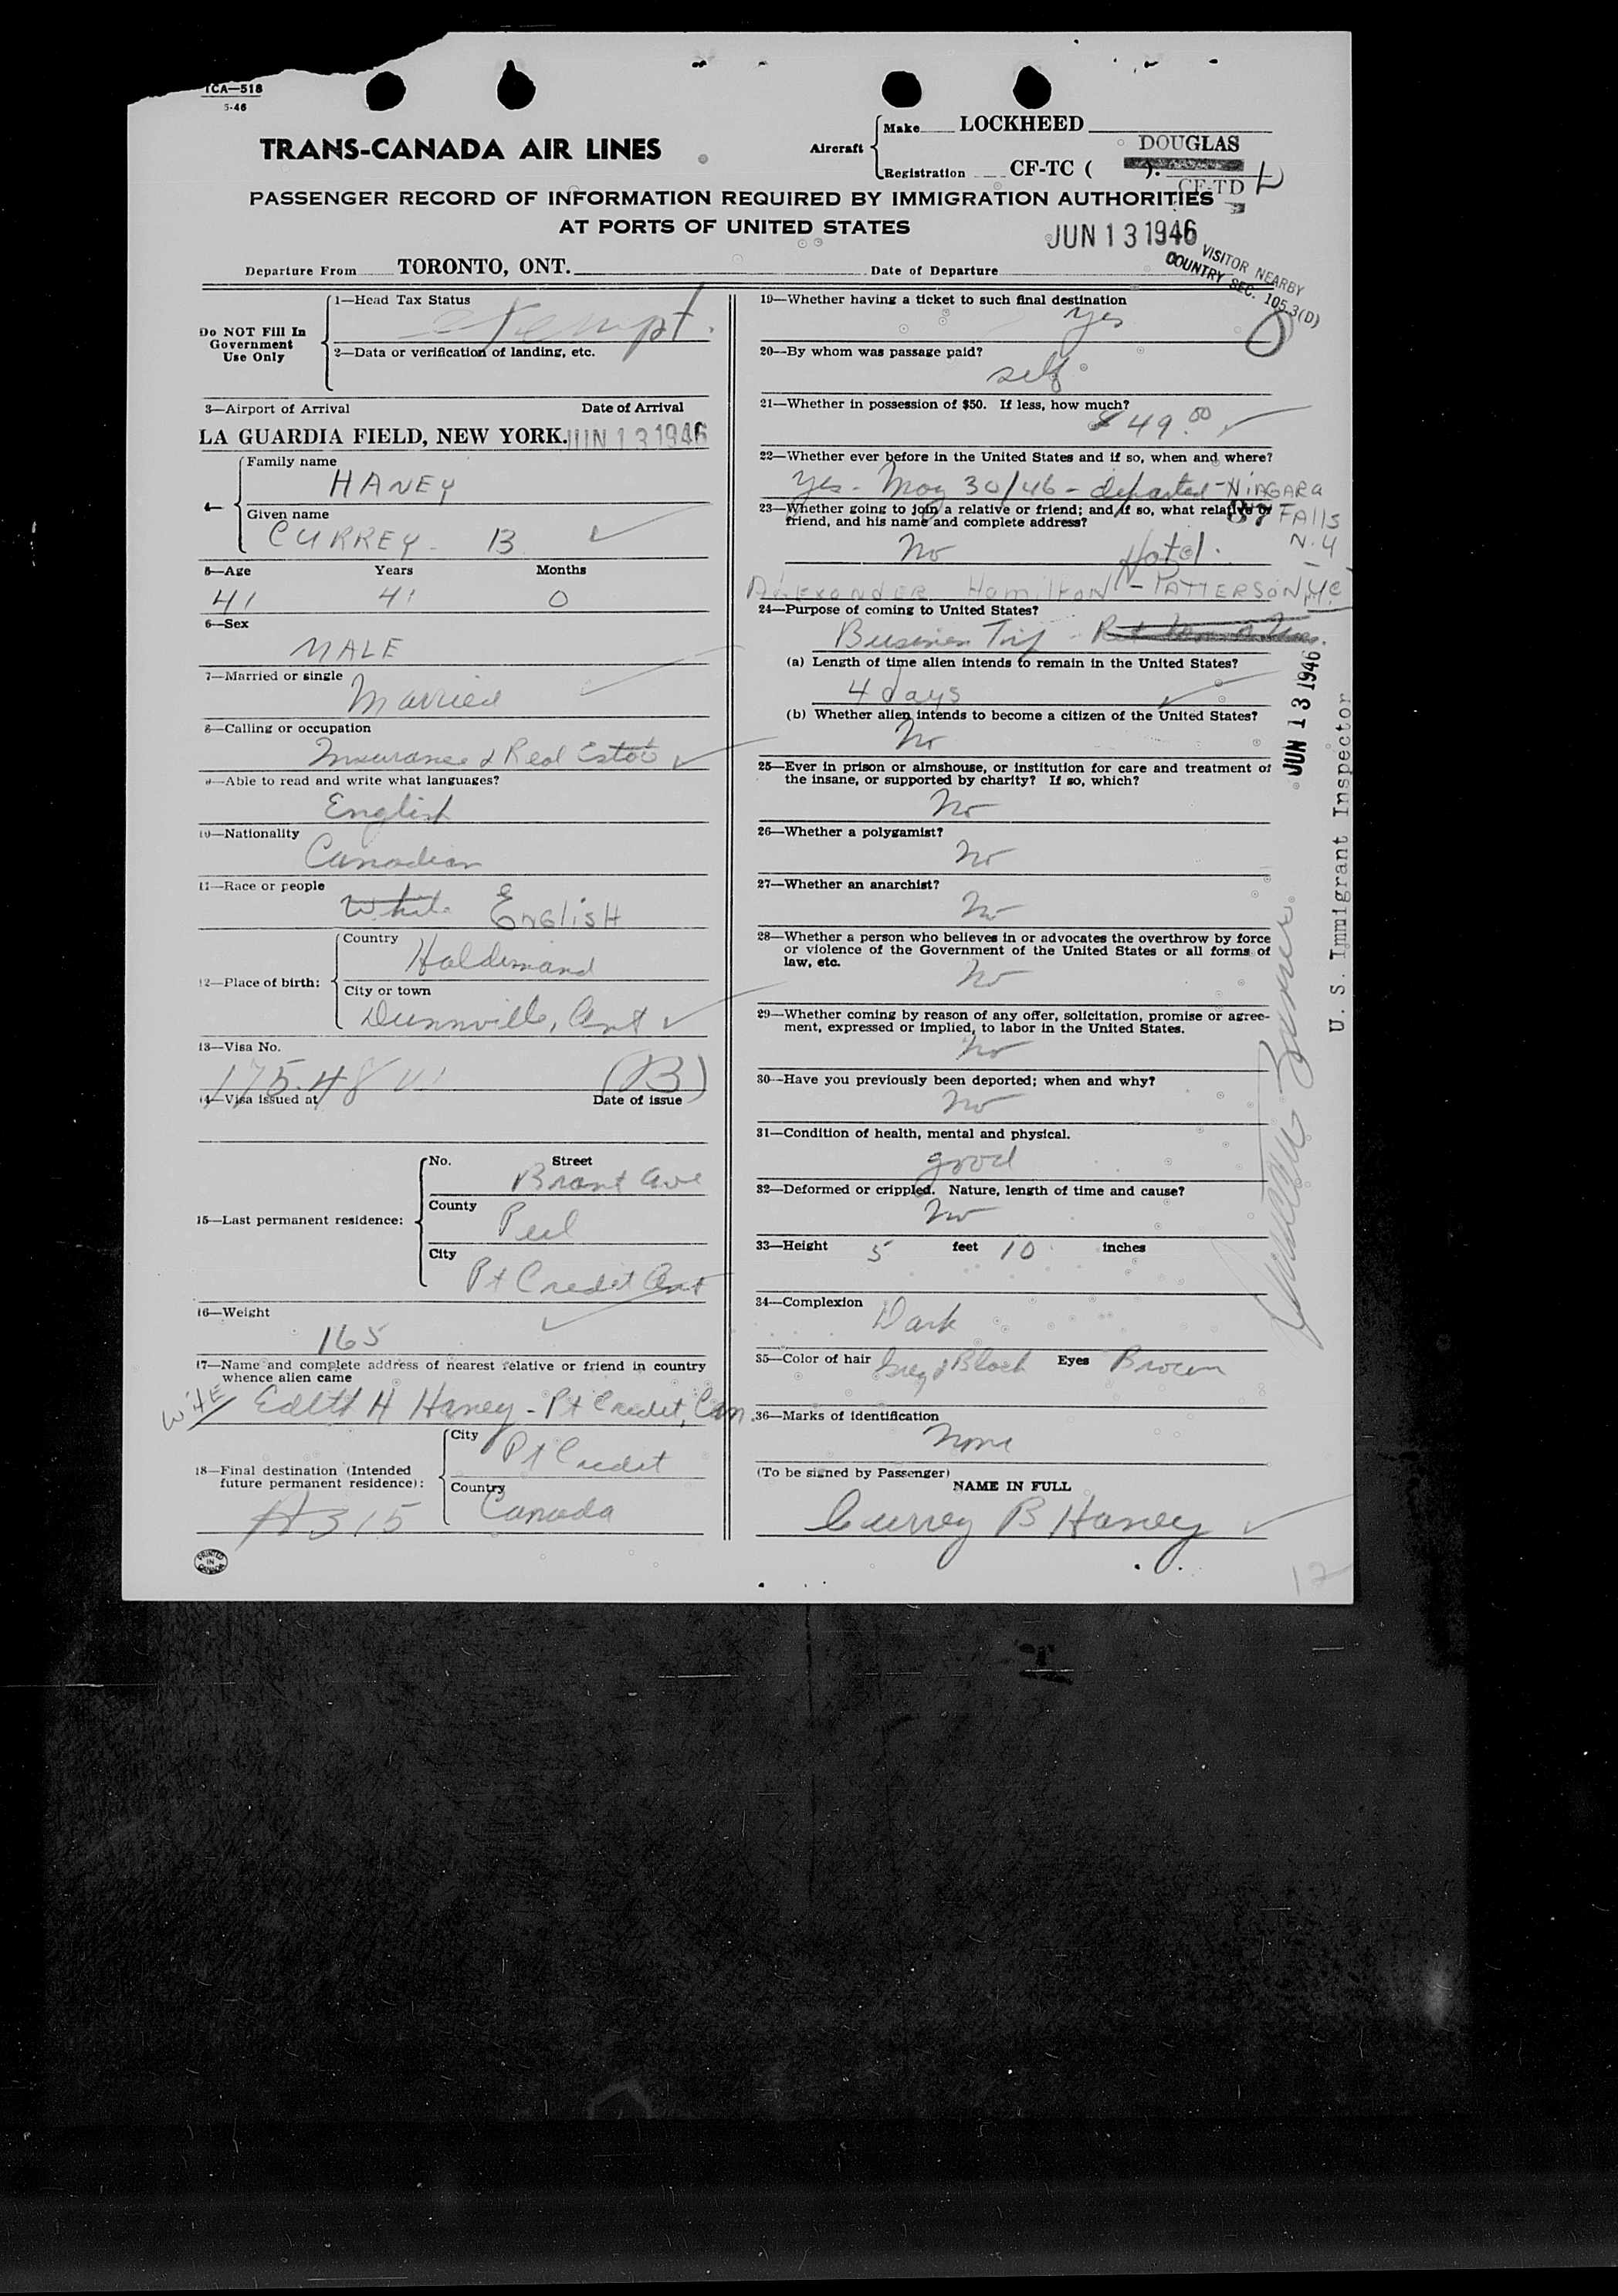 TCA—518
5-46
TRANS-CANADA AIR LINES
Aircraft
Make LOCKHEED
DOUGLAS
Registration CF-TC ( ).
CF-TD L
PASSENGER RECORD OF INFORMATION REQUIRED BY IMMIGRATION AUTHORITIES
AT PORTS OF UNITED STATES
JUN 13 1946
VISITOR NEARBY
COUNTRY SEC. 105.3(D)
Departure From TORONTO, ONT. Date of Departure
Do NOT Fill In
Government
Use Only
1—Head Tax Status
Exempt.
2—Data or verification of landing, etc.
3—Airport of Arrival Date of Arrival
LA GUARDIA FIELD, NEW YORK. JUN 13 1946
4—
Family name
HANEY
Given name
CURREY- B
5—Age Years Months
41 41 0
6—Sex
MALE
7—Married or single
Married
8—Calling or occupation
Insurance & Real Estate
9—Able to read and write what languages?
English
10—Nationality
Canadian
11—Race or people
White ENGlisH
12—Place of birth:
Country
Haldimand
City or town
Dunnville, Ont
13—Visa No.
175.48 (B)
14—Visa issued at Date of issue
15—Last permanent residence:
No. Street
Brant Ave
County
Peel
City
Pt Credit Ont
16—Weight
165
17—Name and complete address of nearest relative or friend in country
whence alien came
wife Edith H Haney - Pt Credit, Can.
18—Final destination (Intended
future permanent residence):
City
Pt Credit
Country
Canada
A315
PRINTED
IN
CANADA
19—Whether having a ticket to such final destination
yes
20—By whom was passage paid?
self
21—Whether in possession of $50. If less, how much?
$49.00
22—Whether ever before in the United States and if so, when and where?
yes - May 30/46 - departed - NIAGARA
FAllS
N.Y
23—Whether going to join a relative or friend; and if so, what relative or
friend, and his name and complete address?
No Hotel.
Alexander Hamilton - PATTERSON,
24—Purpose of coming to United States?
Business Trip
(a) Length of time alien intends to remain in the United States?
4 days
(b) Whether alien intends to become a citizen of the United States?
No
25—Ever in prison or almshouse, or institution for care and treatment of
the insane, or supported by charity? If so, which?
No
26—Whether a polygamist?
No
27—Whether an anarchist?
No
28—Whether a person who believes in or advocates the overthrow by force
or violence of the Government of the United States or all forms of
law, etc.
No
29—Whether coming by reason of any offer, solicitation, promise or agree-
ment, expressed or implied, to labor in the United States.
No
30—Have you previously been deported; when and why?
No
31—Condition of health, mental and physical.
good
32—Deformed or crippled. Nature, length of time and cause?
No
33—Height 5 feet 10 inches
34—Complexion
Dark
35—Color of hair Grey & Black Eyes Brown
36—Marks of identification
None
(To be signed by Passenger)
NAME IN FULL
Currey B Haney
JUN 13 1946
U. S. Immigrant Inspector
12